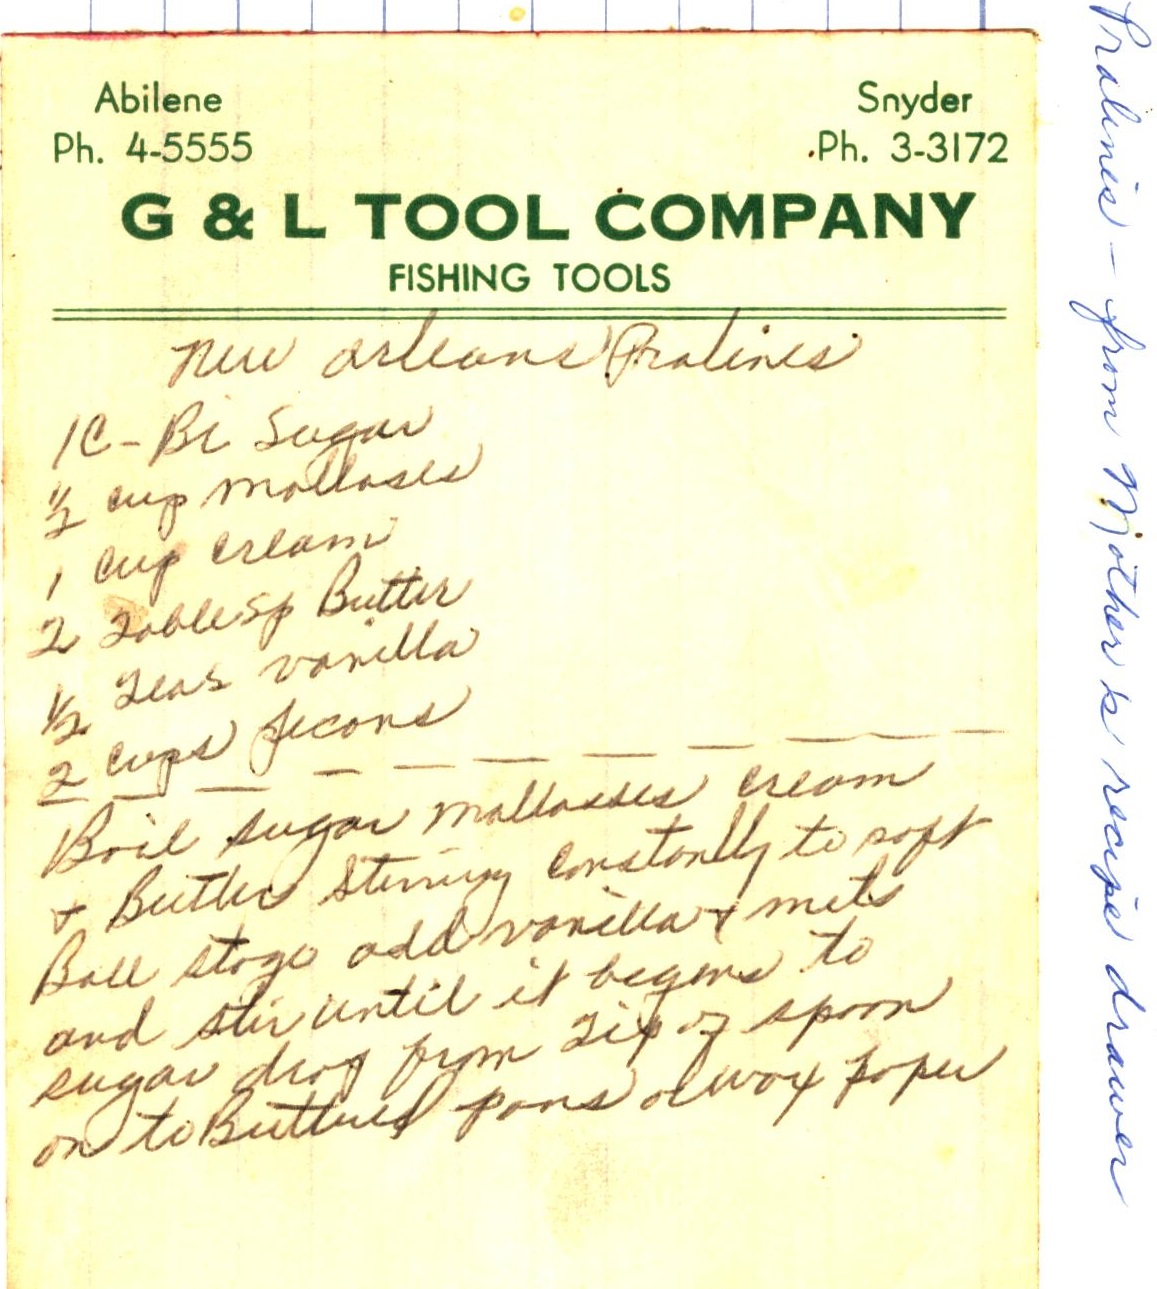 Abilene
Ph. 4-5555
Snyder
Ph. 3-3172
G & L TOOL COMPANY
FISHING TOOLS
New Orleans Pralines
1C - Br Sugar
1/2 cup mollases
1 cup cream
2 TableSp Butter
1/2 Teas vanilla
2 cups pecans
Boil sugar mollasses cream
+ Butter Stirring constantly to soft
Ball stage add vanilla + nuts
and stir until it begins to
sugar drop from Tip of spoon
on to Buttered pans or wax paper
Pralines - from Mother's recipe drawer